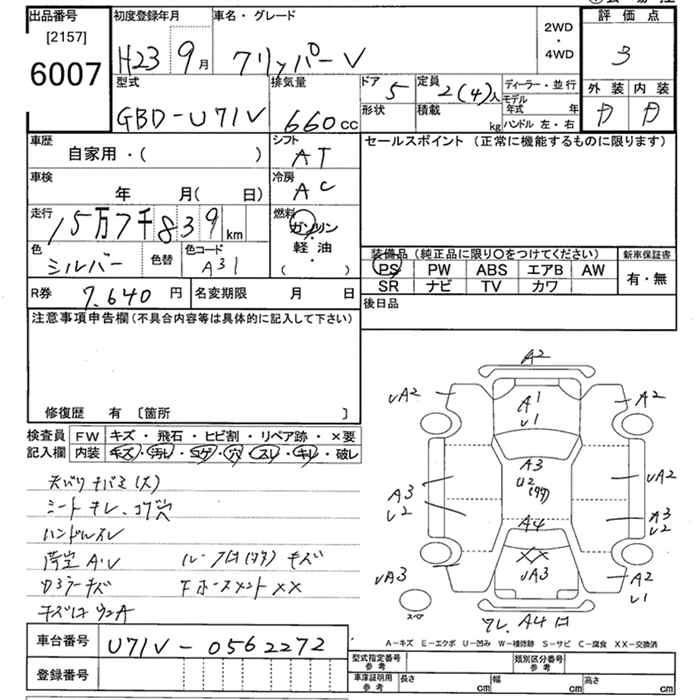 出品番号
[2157]
6007
初度登録年月
H23 9月
車名・グレード
クリッパーV
2WD
・
4WD
評価点
3
外装 内装
D D
型式
GBD-U71V
排気量
660cc
ドア 5
定員 2(4)人
形状
積載 kg
ディーラー・並行
モデル年式 年
ハンドル 左・右
車歴
自家用・( )
シフト
AT
セールスポイント (正常に機能するものに限ります)
車検
年 月( 日)
冷房
AC
走行
15万7千839km
燃料
ガソリン
・
軽油
( )
色
シルバー
色替
色コード
A31
装備品 (純正品に限り〇をつけてください)
PS PW ABS エアB AW
SR ナビ TV カワ
新車保証書
有・無
R券 7,640円
名変期限 月 日
後日品
注意事項申告欄(不具合内容等は具体的に記入して下さい)
修復歴 有 [箇所 ]
検査員記入欄
FW キズ・飛石・ヒビ割・リペア跡・×要
内装 キズ・汚レ・コゲ・穴・スレ・キレ・破レ
シートキレ、コゲ穴
ハンドルスレ
荷室A.U
キズ
XX
車台番号 U71V-0562272
登録番号
A2
UA2
A1
U1
A2
A3
U2
A3
U2
UA2
A3
U2
A4
UA3
XX
UA3
A2
U1
A4
スペア
A-キズ E-エクボ U-凹み W-補修跡 S-サビ C-腐食 XX-交換済
型式指定番号
参考
類別区分番号
参考
車庫証明用
参考
長さ cm
幅 cm
高さ cm